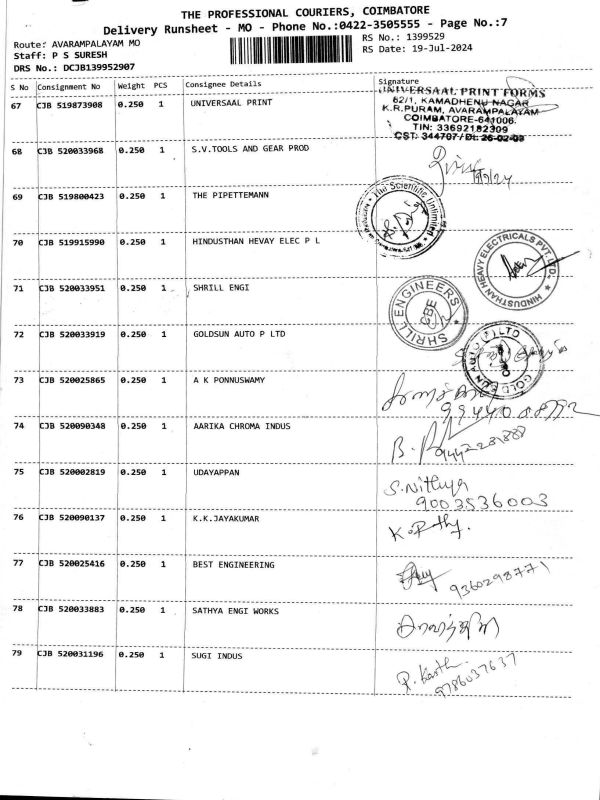 THE PROFESSIONAL COURIERS, COIMBATORE
Delivery Runsheet - MO - Phone No.:0422-3505555 - Page No.:7
Route: AVARAMPALAYAM MO
RS No.: 1399529
Staff: P S SURESH
RS Date: 19-Jul-2024
DRS No.: DCJB139952907
S No Consignment No Weight PCS Consignee Details Signature
67 CJB 519873908 0.250 1 UNIVERSAAL PRINT
UNIVERSAAL PRINT FORMS
62/1, KAMADHENU NAGAR
K.R.PURAM, AVARAMPALAYAM
COIMBATORE-641006.
TIN: 33692182309
CST: 344707/Dt. 26-02-03
68 CJB 520033968 0.250 1 S.V.TOOLS AND GEAR PROD
69 CJB 519800423 0.250 1 THE PIPETTEMANN
The Scientific Unlimited
70 CJB 519915990 0.250 1 HINDUSTHAN HEVAY ELEC P L
HINDUSTHAN HEAVY ELECTRICALS PVT. LTD.
71 CJB 520033951 0.250 1 SHRILL ENGI
SHRILL ENGINEERS
CBE
72 CJB 520033919 0.250 1 GOLDSUN AUTO P LTD
GOLD SUN AUTO (P) LTD
73 CJB 520025865 0.250 1 A K PONNUSWAMY
74 CJB 520090348 0.250 1 AARIKA CHROMA INDUS
75 CJB 520002819 0.250 1 UDAYAPPAN
S.Nithya
9003536003
76 CJB 520090137 0.250 1 K.K.JAYAKUMAR
77 CJB 520025416 0.250 1 BEST ENGINEERING
9360298771
78 CJB 520033883 0.250 1 SATHYA ENGI WORKS
79 CJB 520031196 0.250 1 SUGI INDUS
9786037637